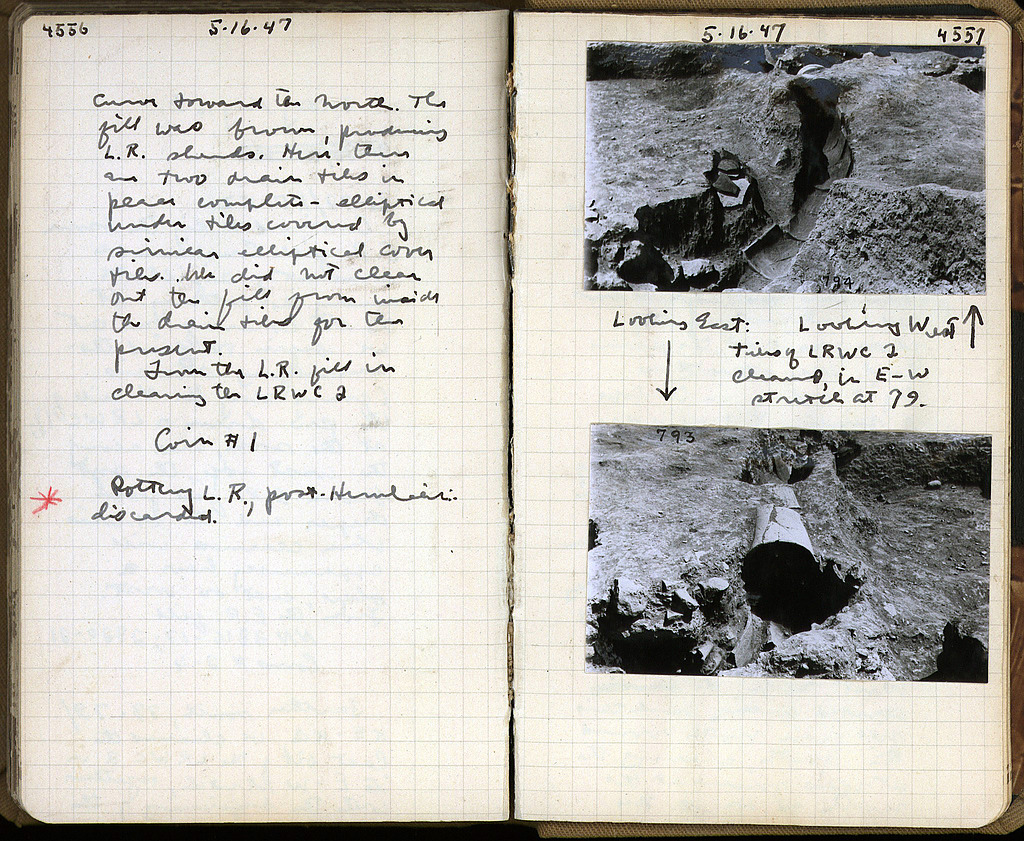 4556
5·16·47
curve toward the north. The
fill was brown, producing
L.R. sherds. Here there
are two drain tiles in
place complete - elliptical
under tiles covered by
similar elliptical cover
tiles. We did not clear
out the fill from inside
the drain tiles for the
present.
From the L.R. fill in
clearing the LRWC 2
Coin #1
Pottery L.R., post-Herulian.
discarded.
5·16·47
4557
794
Looking East:
Looking West
Tiles of LRWC 2
cleaned, in E-W
stretch at 79.
793